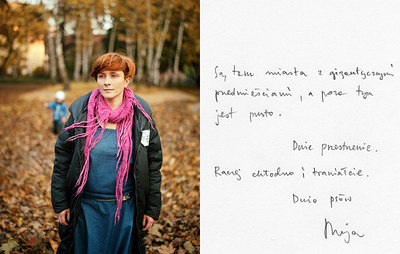 Są tam miasta z gigantycznymi
przedmieściami, a poza tym
jest pusto.
Duże przestrzenie.
Raczej chłodno i
Dużo psów
Maja